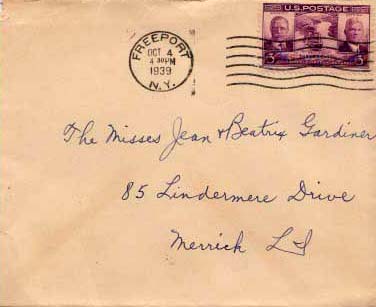 U.S. POSTAGE
FREEPORT
OCT 4
4 30 PM
1939
N.Y.
3¢
The Misses Jean & Beatrix Gardiner
85 Lindermere Drive
Merrick L I